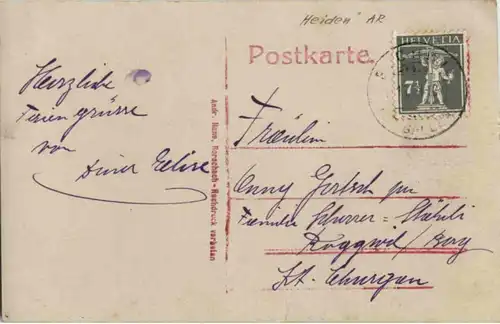 "Heiden" AR
Postkarte.
HELVETIA
7½
Herzliche
Feriengrüsse
von
Deiner Elise
Andr. Hane, Rorschach - Nachdruck verboten
Fräulein
Anny
Familie Scherrer = Stäheli
Roggwil / Berg
Kt. Thurgau